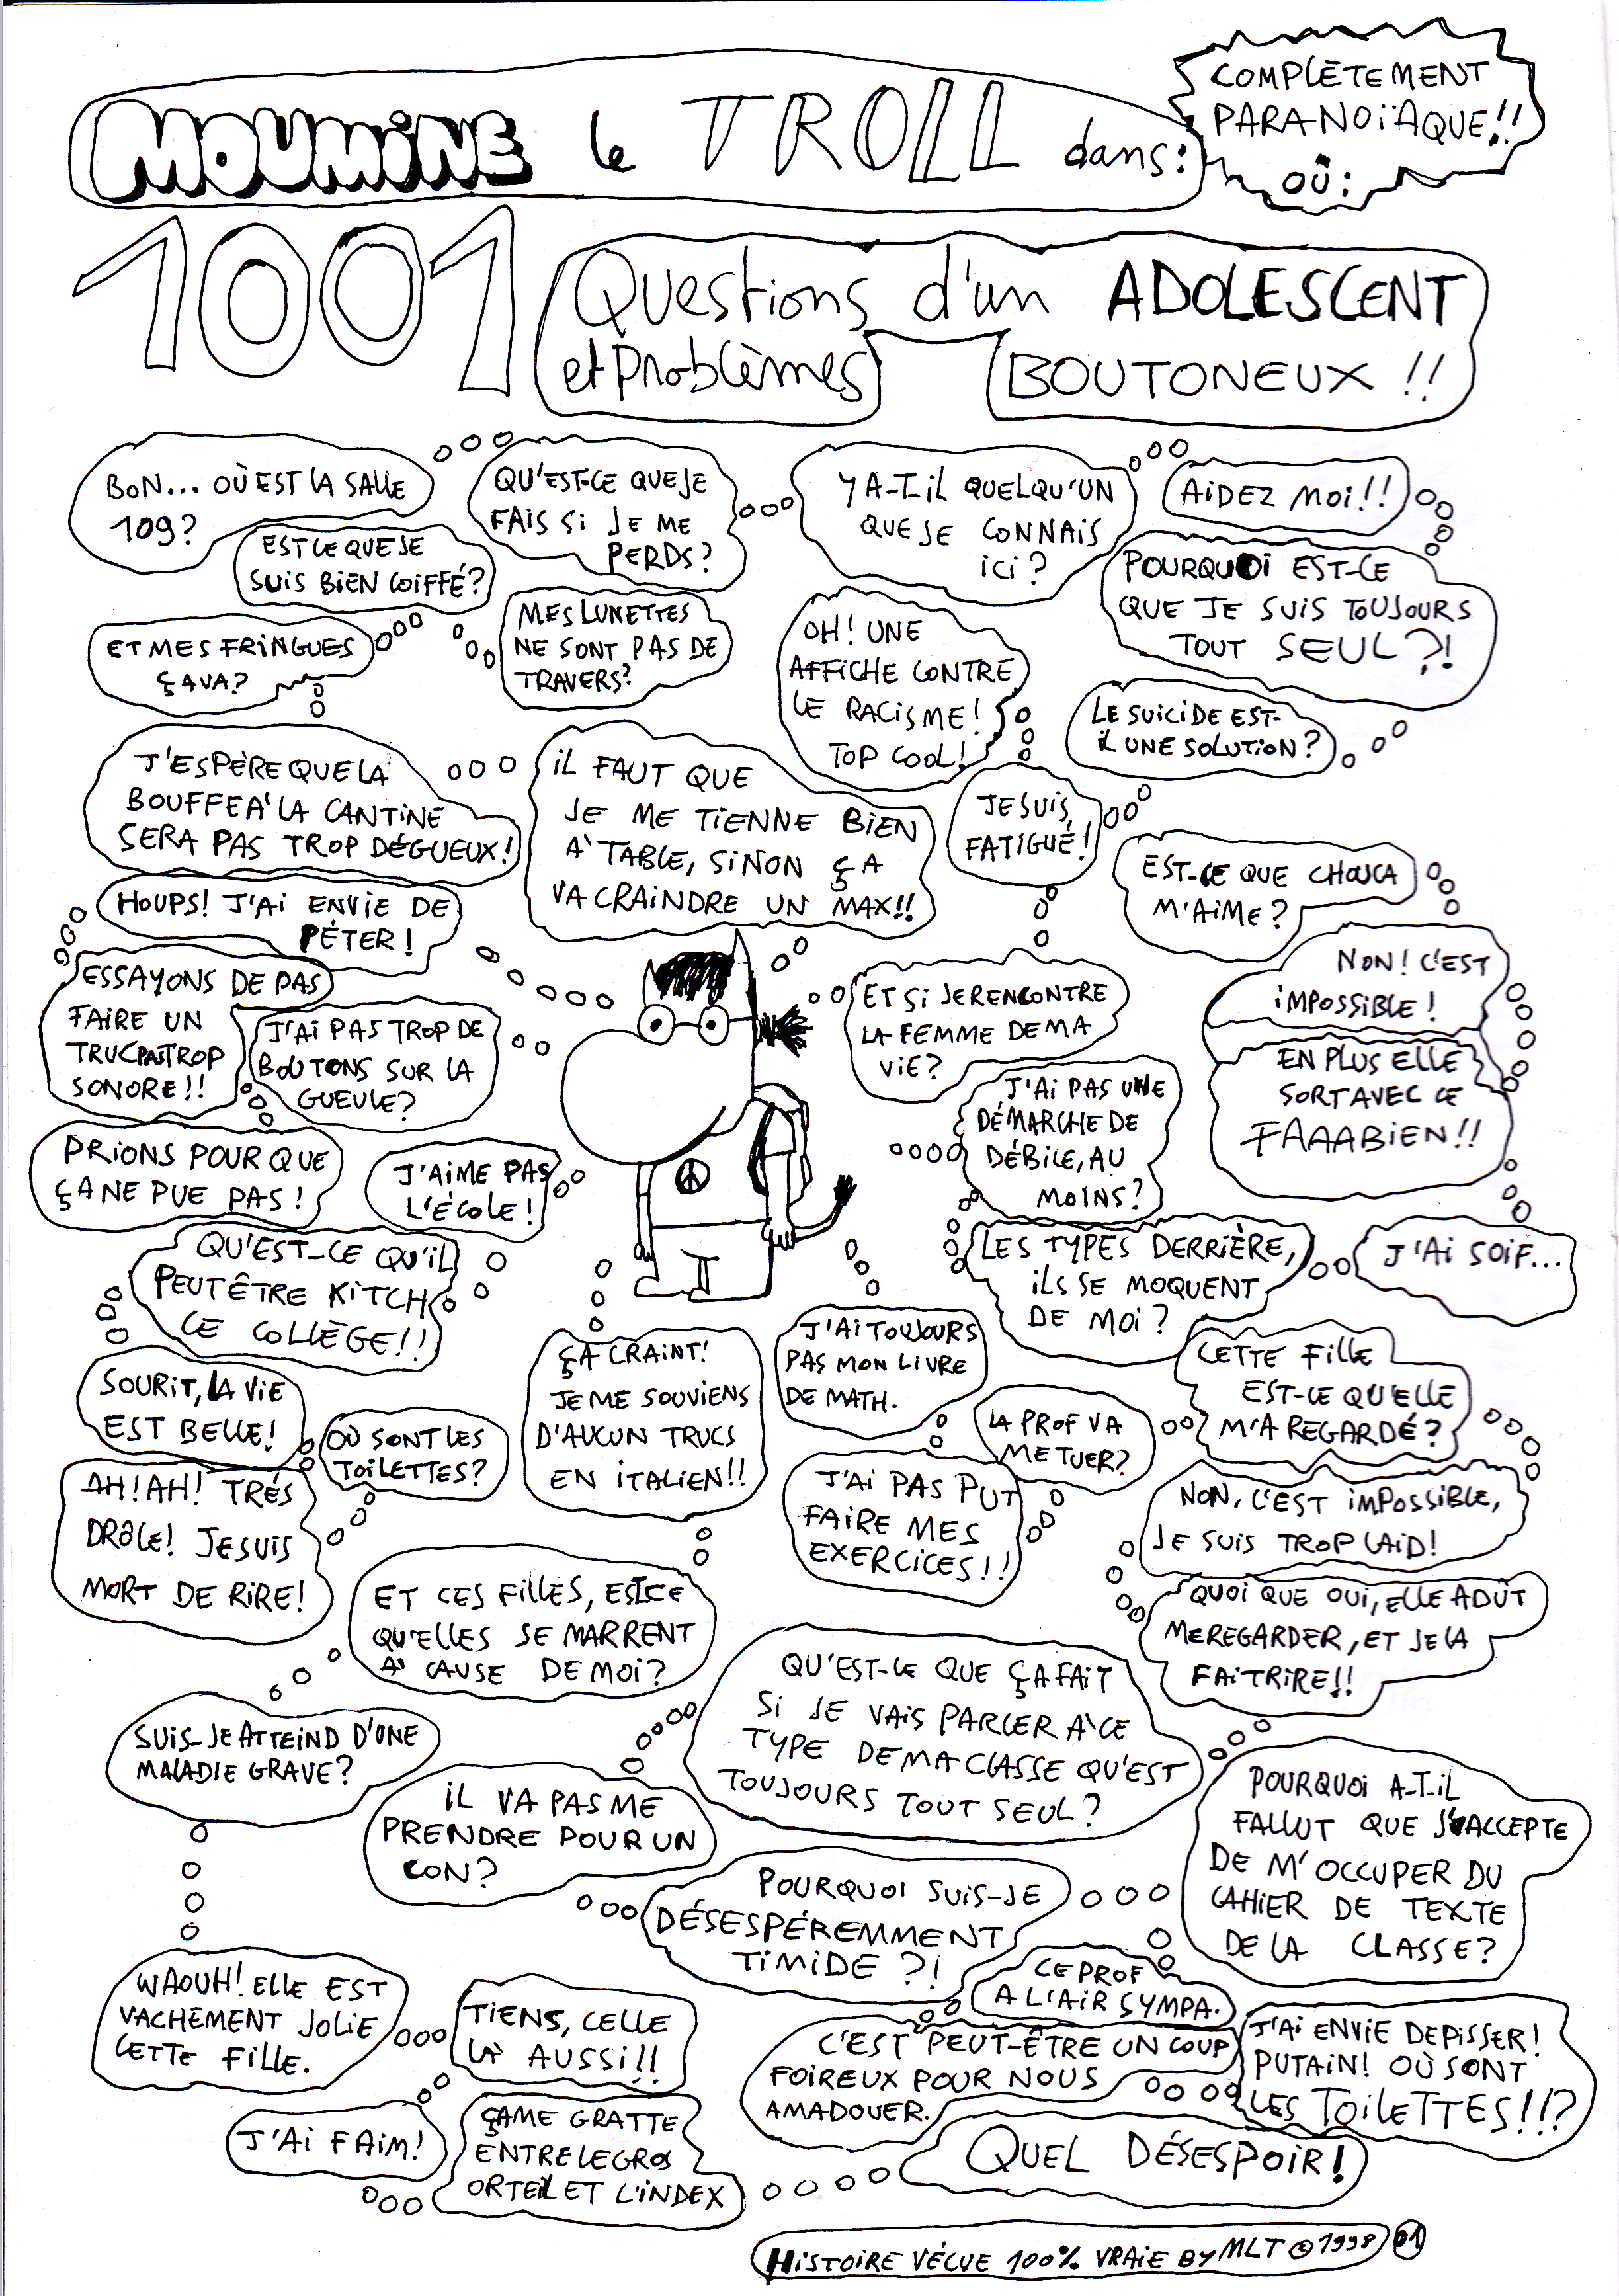 MOUMINE le TROLL dans:
COMPLÈTEMENT
PARANOÏAQUE!!
OÙ:
1001
Questions d'un ADOLESCENT
et Problèmes
BOUTONEUX !!
BON... OÙ EST LA SALLE
109?
EST CE QUE JE
SUIS BIEN COIFFÉ?
ET MES FRINGUES
ÇA VA?
QU'EST-CE QUE JE
FAIS SI JE ME
PERDS?
MES LUNETTES
NE SONT PAS DE
TRAVERS?
Y A-T-IL QUELQU'UN
QUE JE CONNAIS
ICI?
AIDEZ MOI!!
POURQUOI EST-CE
QUE JE SUIS TOUJOURS
TOUT SEUL?!
OH! UNE
AFFICHE CONTRE
LE RACISME!
TOP COOL!
LE SUICIDE EST-
IL UNE SOLUTION?
JE SUIS
FATIGUÉ!
J'ESPÈRE QUE LA
BOUFFE À LA CANTINE
SERA PAS TROP DÉGUEUX!
IL FAUT QUE
JE ME TIENNE BIEN
À TABLE, SINON ÇA
VA CRAINDRE UN MAX!!
EST-CE QUE CHOUCA
M'AIME?
HOUPS! J'AI ENVIE DE
PÉTER!
ESSAYONS DE PAS
FAIRE UN
TRUC PAS TROP
SONORE!!
J'AI PAS TROP DE
BOUTONS SUR LA
GUEULE?
ET SI JE RENCONTRE
LA FEMME DE MA
VIE?
NON! C'EST
IMPOSSIBLE!
EN PLUS ELLE
SORT AVEC CE
FAAABIEN!!
J'AI PAS UNE
DÉMARCHE DE
DÉBILE, AU
MOINS?
PRIONS POUR QUE
ÇA NE PUE PAS!
J'AIME PAS
L'ÉCOLE!
LES TYPES DERRIÈRE,
ILS SE MOQUENT
DE MOI?
J'AI SOIF...
QU'EST-CE QU'IL
PEUT ÊTRE KITCH
CE COLLÈGE!!
SOURIT, LA VIE
EST BELLE!
OÙ SONT LES
TOILETTES?
ÇA CRAINT!
JE ME SOUVIENS
D'AUCUN TRUCS
EN ITALIEN!!
J'AI TOUJOURS
PAS MON LIVRE
DE MATH.
LA PROF VA
ME TUER?
CETTE FILLE
EST-CE QU'ELLE
M'A REGARDÉ?
AH! AH! TRÉS
DRÔLE! JE SUIS
MORT DE RIRE!
J'AI PAS PUT
FAIRE MES
EXERCICES!!
NON, C'EST IMPOSSIBLE,
JE SUIS TROP LAID!
ET CES FILLES, EST CE
QU'ELLES SE MARRENT
À CAUSE DE MOI?
QUOI QUE OUI, ELLE A DÛT
ME REGARDER, ET JE LA
FAIT RIRE!!
QU'EST-CE QUE ÇA FAIT
SI JE VAIS PARLER À CE
TYPE DE MA CLASSE QU'EST
TOUJOURS TOUT SEUL?
SUIS-JE ATTEIND D'UNE
MALADIE GRAVE?
IL VA PAS ME
PRENDRE POUR UN
CON?
POURQUOI A-T-IL
FALLUT QUE J'ACCEPTE
DE M'OCCUPER DU
CAHIER DE TEXTE
DE LA CLASSE?
POURQUOI SUIS-JE
DÉSESPÉREMMENT
TIMIDE?!
WAOUH! ELLE EST
VACHEMENT JOLIE
CETTE FILLE.
TIENS, CELLE
LÀ AUSSI!!
CE PROF
A L'AIR SYMPA.
C'EST PEUT-ÊTRE UN COUP
FOIREUX POUR NOUS
AMADOUER.
J'AI ENVIE DE PISSER!
PUTAIN! OÙ SONT
LES TOILETTES!!?
J'AI FAIM!
ÇA ME GRATTE
ENTRE LE GROS
ORTEIL ET L'INDEX
QUEL DÉSESPOIR!
HISTOIRE VÉCUE 100% VRAIE BY MLT © 1998 01